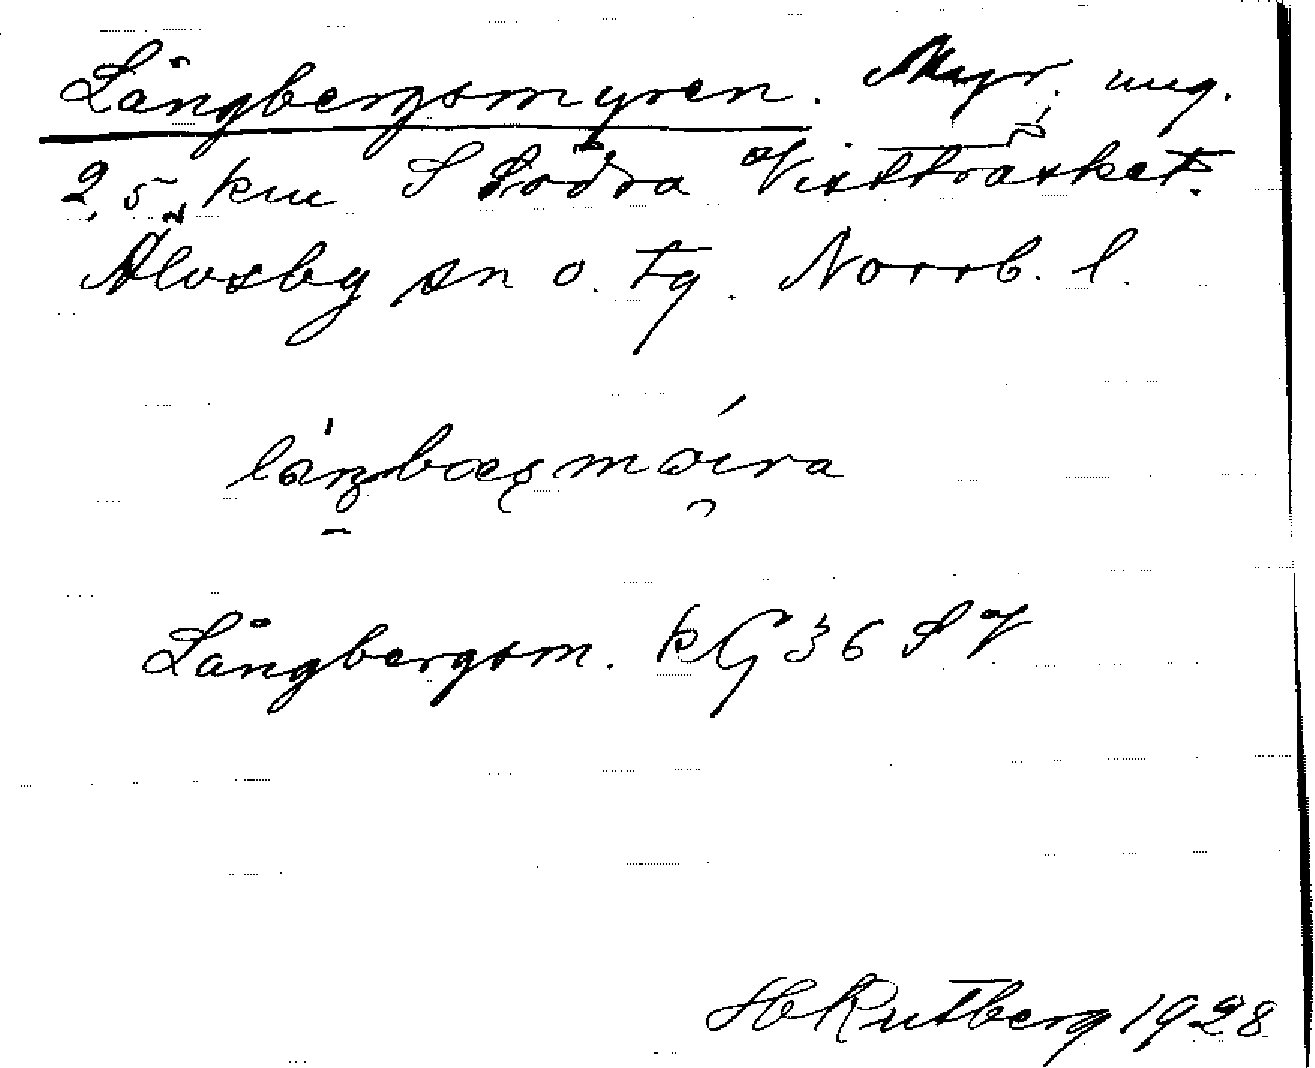 Långbergsmyren. Myr. ung.
2,5 km S Södra Vistträsket.
Älvsby sn o. tg. Norrb. l.
Långbergsm. kG 36 SV
H Rutberg 1928